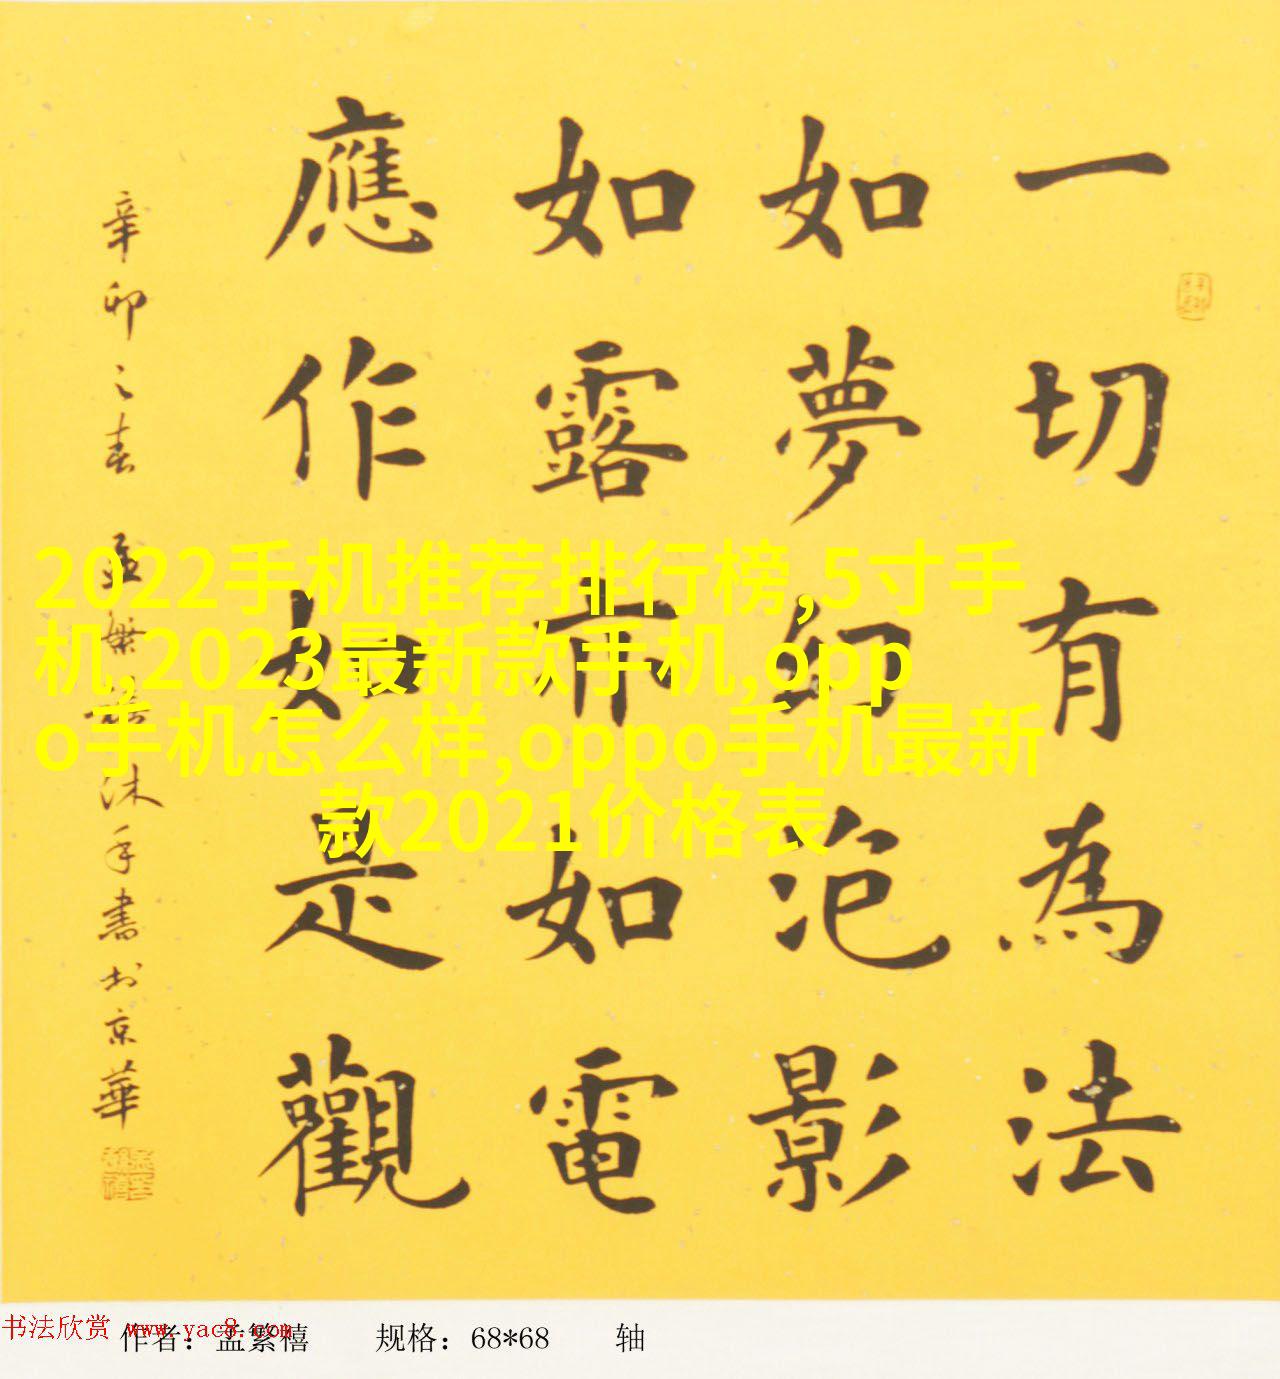 一切有為法
如夢幻泡影
如露亦如電
應作如是觀
辛卯之春 孟繁禧沐手書於京華
2022手机推荐排行榜,5寸手
机,2023最新款手机,opp
o手机怎么样,oppo手机最新
款2021价格表
书法欣赏 www.yac8.com
作者：孟繁禧 规格：68*68 轴